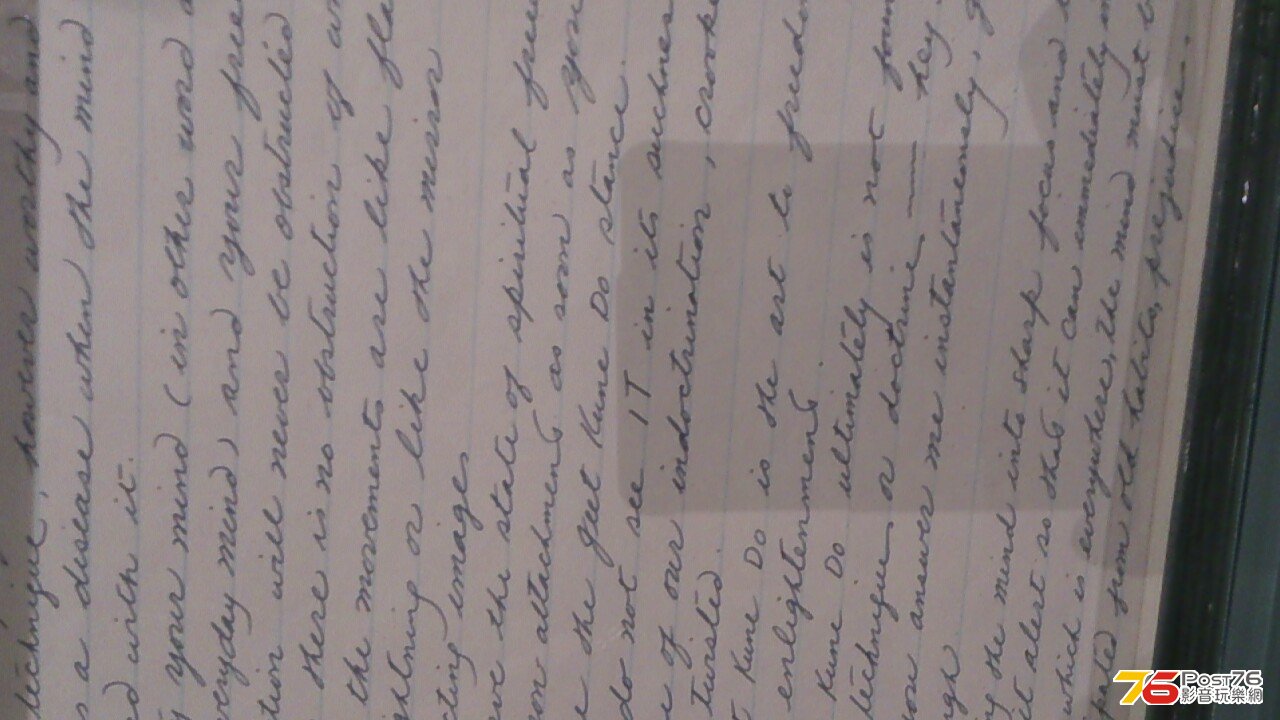 technique, however worthy and
a disease when the mind
with it.
your mind (in other word
everyday mind) and your free
will never be obstructed
there is no obstruction of
the movements are like
or like the mirror
images
the state of spiritual
attachment as soon as you
the Jeet Kune Do stance.
do not see IT in its suchness
of our indoctrination, crooked
twisted.
Kune Do is the art to freedom
enlightenment
Kune Do ultimately is not
technique or a doctrine — they
answer me instantaneously,
the mind into sharp focus and
it alert so that it can immediately
which is everywhere, the mind must
from old habits, prejudice,
76 Post76
影音玩樂網